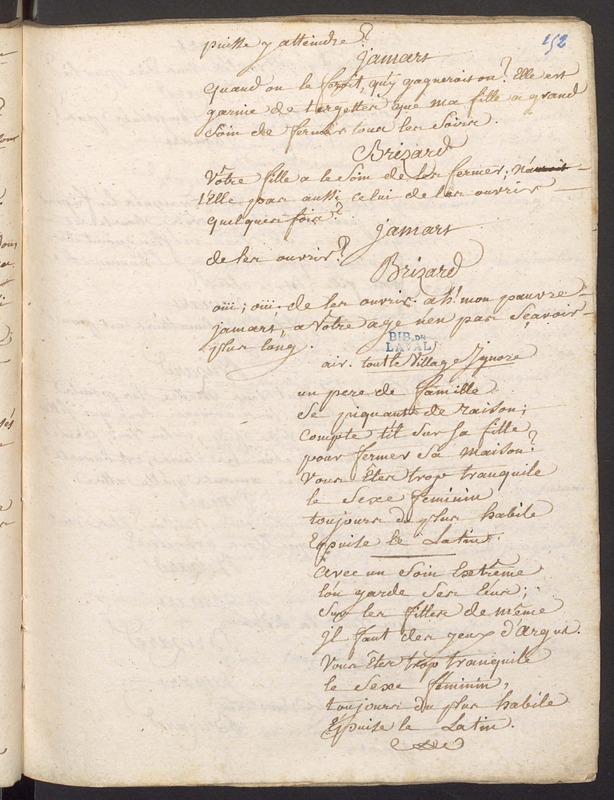 152
puisse y atteindre?
jamars
quand on le feroit, qu'y gagneroit on? Elle est
garnie de targettes que ma fille a grand
Soin de fermer tous les Soirs.
Brizard
Votre fille a le Soin de les fermer; n'auroit
Elle pas aussi celui de les ouvrir
quelques fois?
jamars
de les ouvrir?
Brizard
oüi; oüi; de les ouvrir. ah! mon pauvre
jamars, a Votre age n'en pas Sçavoir
plus long.
BIB. DE
LAVAL
air. tout le Village Ignore
un pere de famille
Se piquant de raison;
compte til Sur Sa fille
pour fermer Sa maison?
Vous Êtes trop tranquile
le Sexe feminin
toujours du plus habile
Epuise le Latin.
avec un Soin Extrême
l'on garde Ses Ecus;
Sur les filles de même
jl faut des yeux d'argus.
Vous Êtes trop tranquile
le Sexe féminin,
toujours du plus habile
Epuise le Latin.